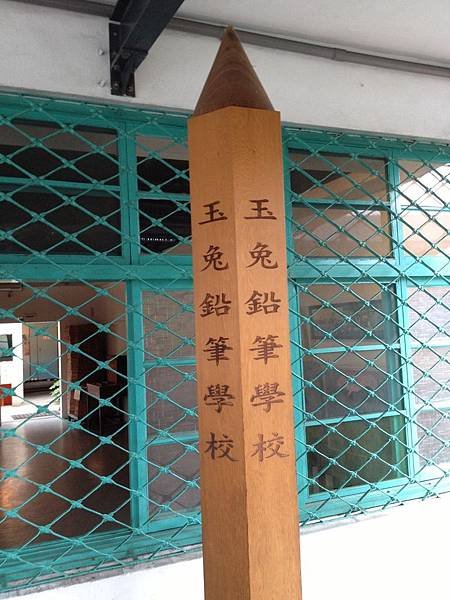 玉兔鉛筆學校
玉兔鉛筆學校